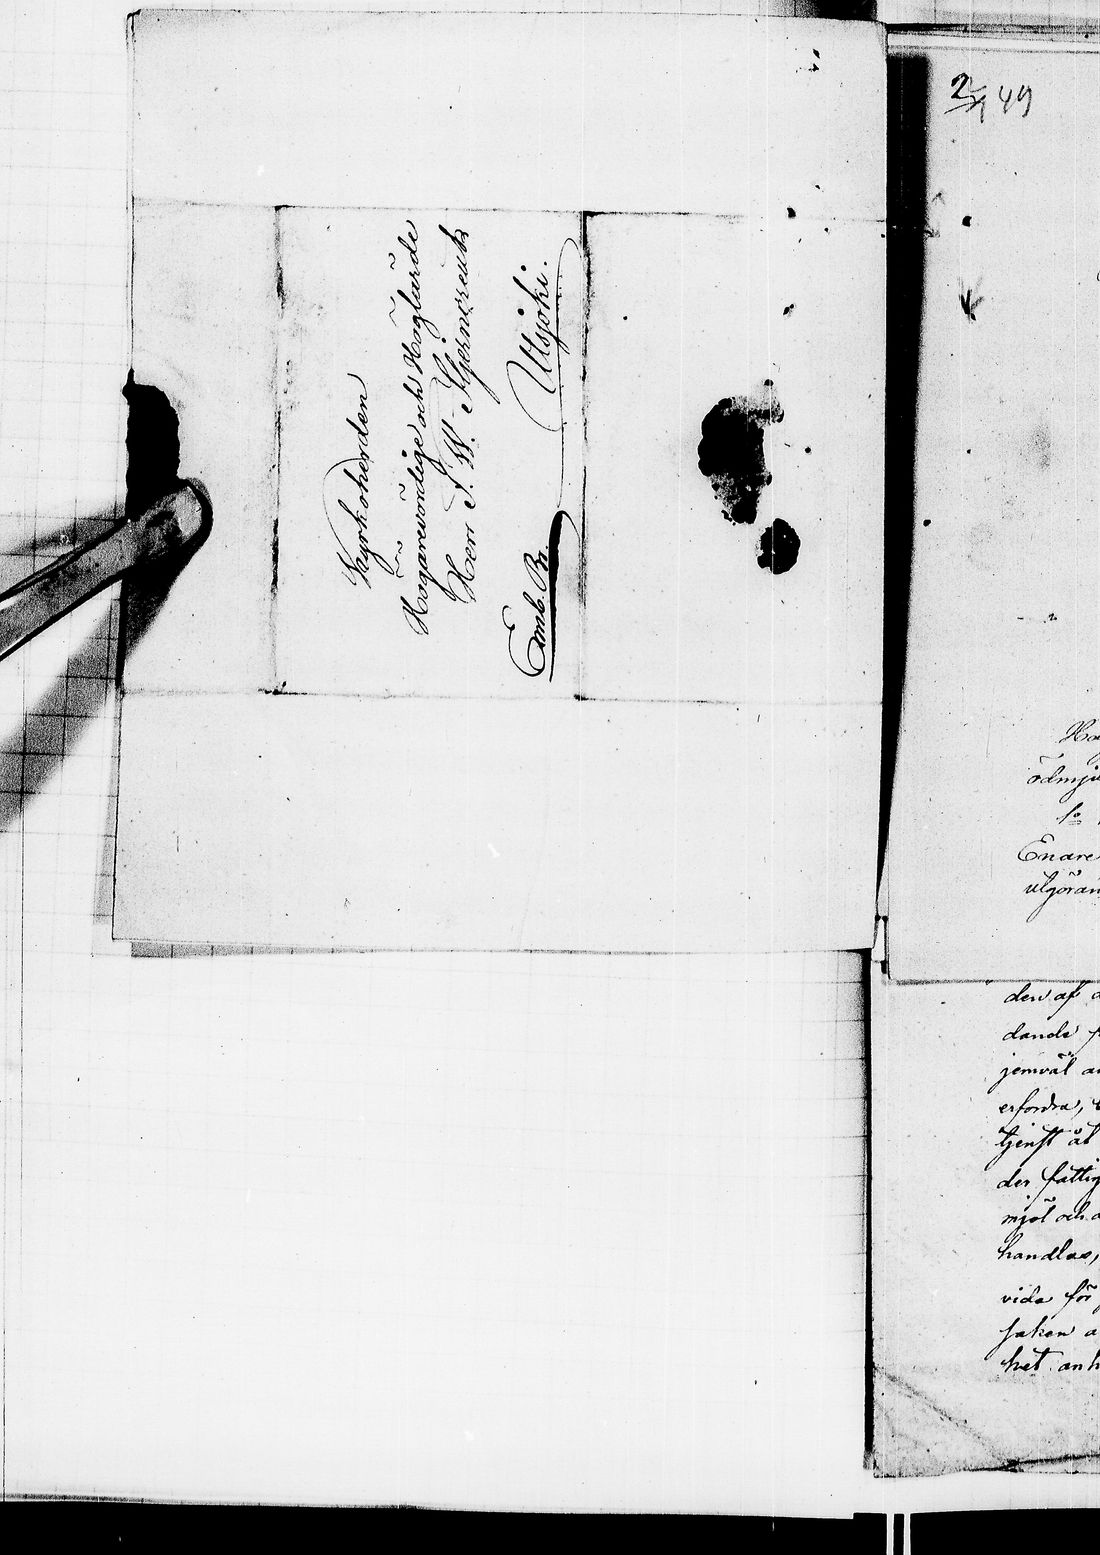 Kyrkoherden
Högarevördige och Höglärde
Herr S. W. Hjerneralh
Emb. Br. Utsjoki.
2/1 49
ödmju
1o
Enare
utgöran
den af
dande
jemväl
erfordra,
tjenst åt
der fattig
mjöl och
handlas,
vida för
saken a
het anh